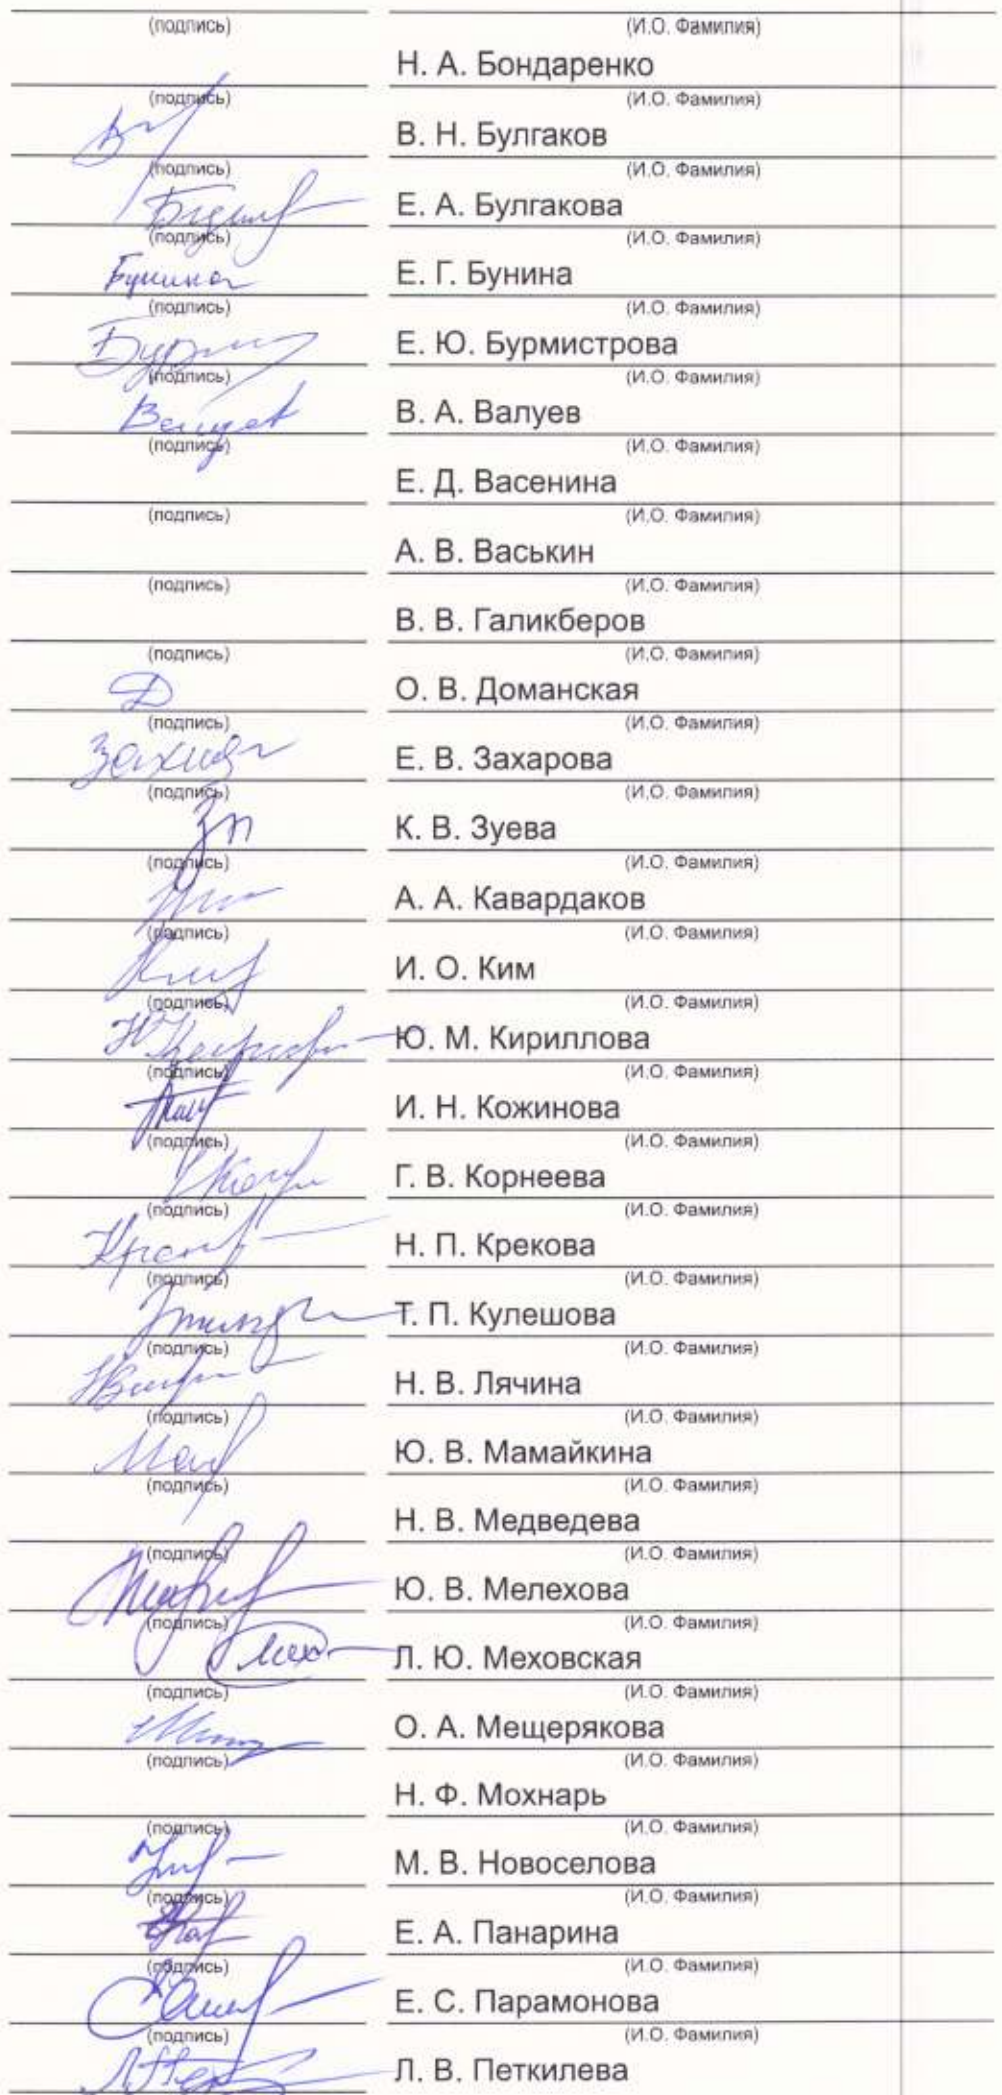 (подпись) (И.О. Фамилия)
Н. А. Бондаренко
(подпись) (И.О. Фамилия)
В. Н. Булгаков
(подпись) (И.О. Фамилия)
Е. А. Булгакова
(подпись) (И.О. Фамилия)
Бунина Е. Г. Бунина
(подпись) (И.О. Фамилия)
Е. Ю. Бурмистрова
(подпись) (И.О. Фамилия)
В. А. Валуев
(подпись) (И.О. Фамилия)
Е. Д. Васенина
(подпись) (И.О. Фамилия)
А. В. Васькин
(подпись) (И.О. Фамилия)
В. В. Галикберов
(подпись) (И.О. Фамилия)
Д О. В. Доманская
(подпись) (И.О. Фамилия)
Е. В. Захарова
(подпись) (И.О. Фамилия)
К. В. Зуева
(подпись) (И.О. Фамилия)
А. А. Кавардаков
(подпись) (И.О. Фамилия)
И. О. Ким
(подпись) (И.О. Фамилия)
Ю. М. Кириллова
(подпись) (И.О. Фамилия)
И. Н. Кожинова
(подпись) (И.О. Фамилия)
Г. В. Корнеева
(подпись) (И.О. Фамилия)
Н. П. Крекова
(подпись) (И.О. Фамилия)
Т. П. Кулешова
(подпись) (И.О. Фамилия)
Н. В. Лячина
(подпись) (И.О. Фамилия)
Ю. В. Мамайкина
(подпись) (И.О. Фамилия)
Н. В. Медведева
(подпись) (И.О. Фамилия)
Ю. В. Мелехова
(подпись) (И.О. Фамилия)
Л. Ю. Меховская
(подпись) (И.О. Фамилия)
О. А. Мещерякова
(подпись) (И.О. Фамилия)
Н. Ф. Мохнарь
(подпись) (И.О. Фамилия)
М. В. Новоселова
(подпись) (И.О. Фамилия)
Е. А. Панарина
(подпись) (И.О. Фамилия)
Е. С. Парамонова
(подпись) (И.О. Фамилия)
Л. В. Петкилева